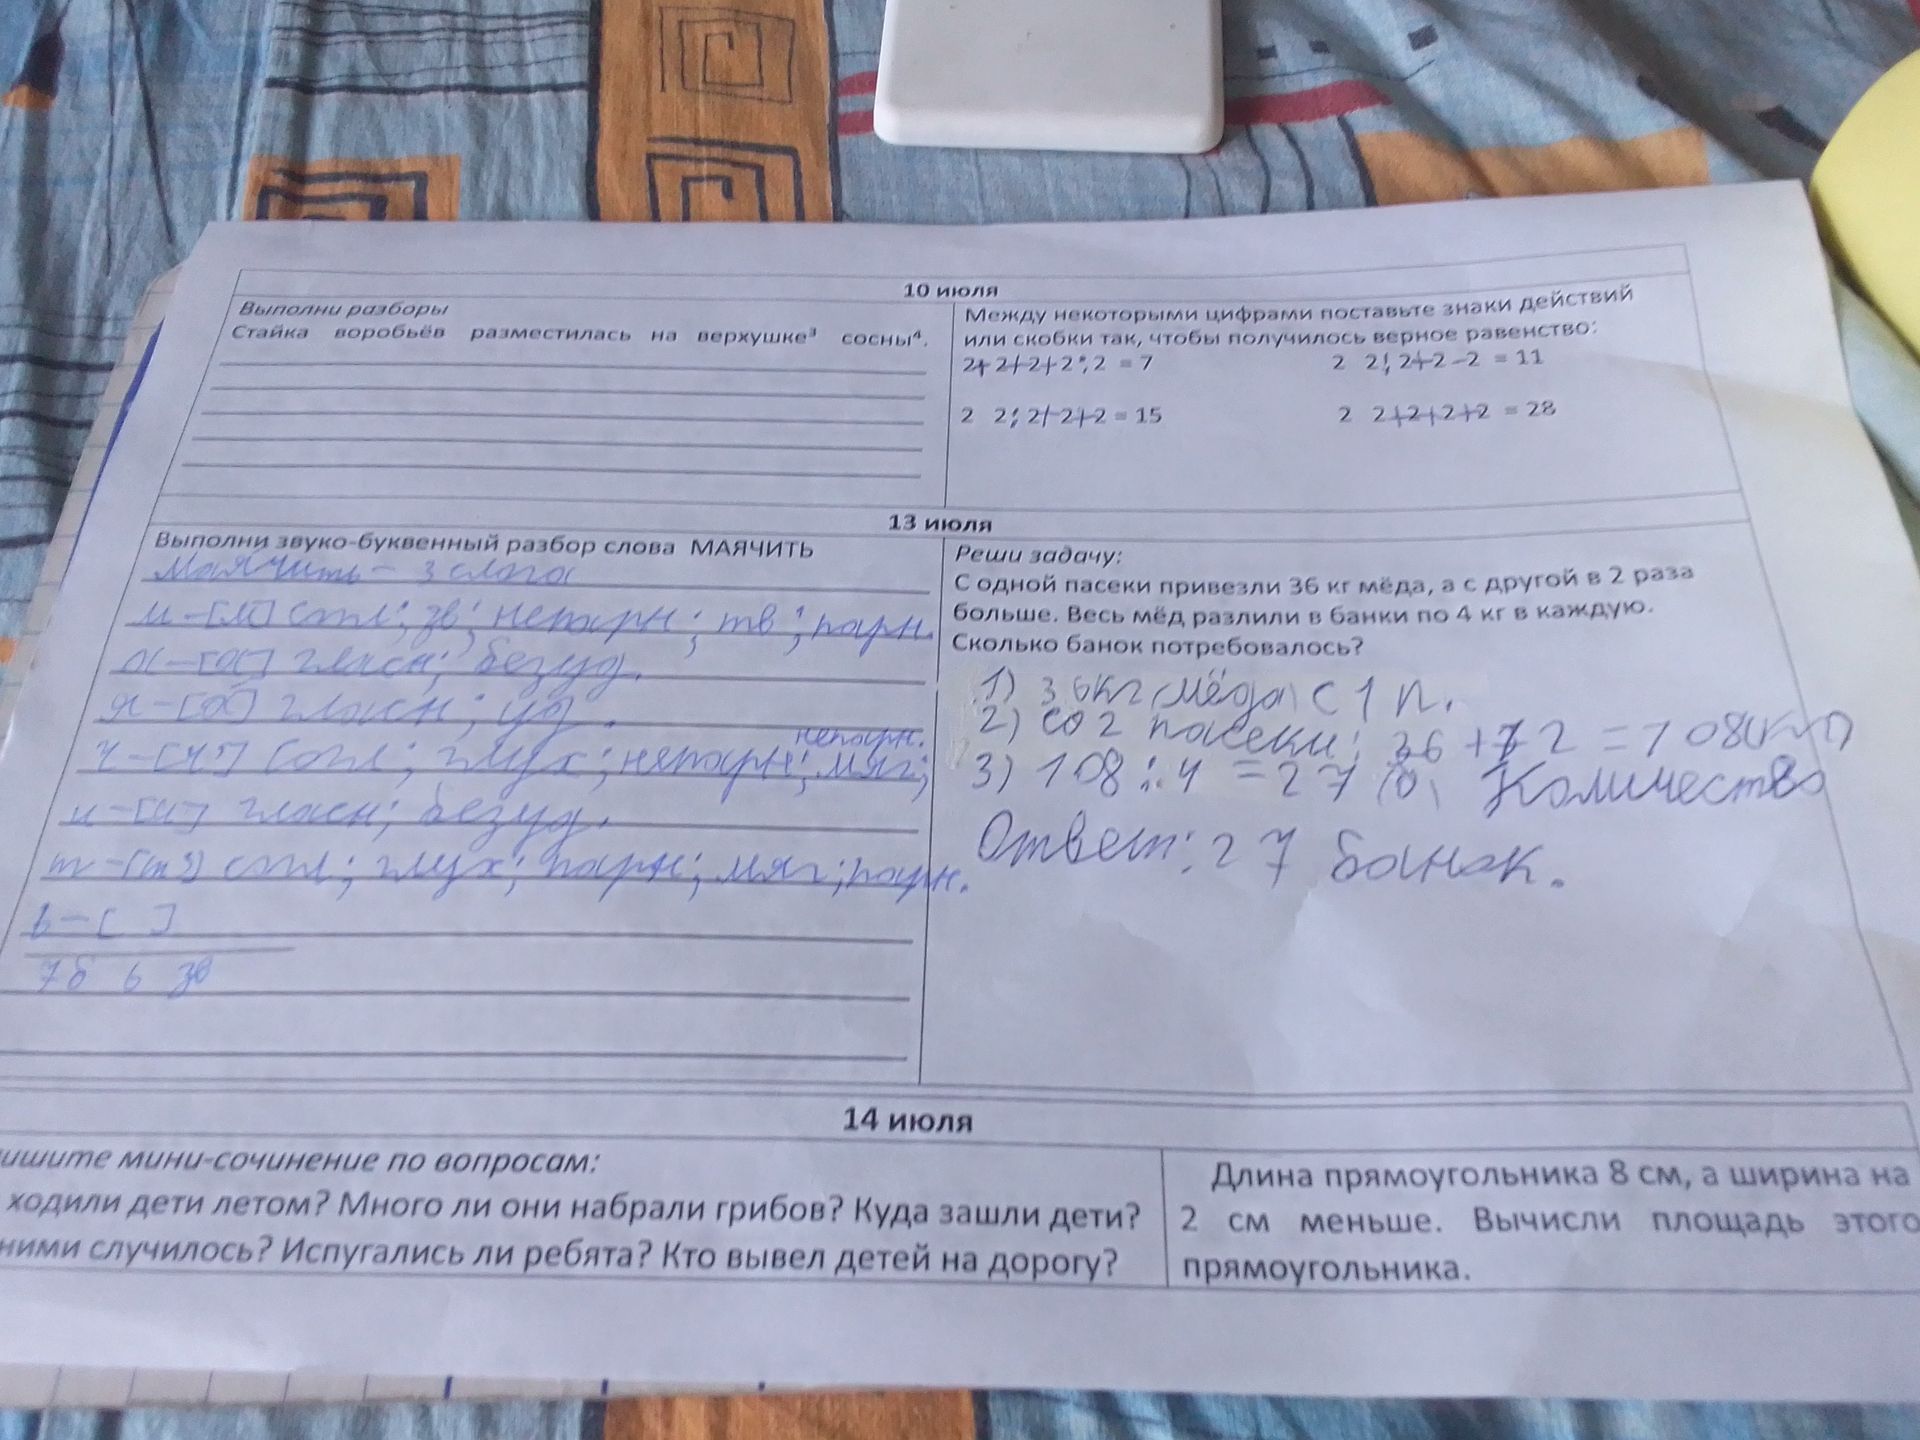 10 июля
Выполни разборы
Стайка воробьёв разместилась на верхушке³ сосны⁴.
Между некоторыми цифрами поставьте знаки действий
или скобки так, чтобы получилось верное равенство:
2+2+2+2:2 = 7 2 2:2+2-2 = 11
2 2:2+2+2 = 15 2 2+2+2+2 = 28
13 июля
Выполни звуко-буквенный разбор слова МАЯЧИТЬ
Маячить - 3 слога
м - [м] согл; зв; непарн; тв; парн.
а - [а] гласн; безуд.
я - [а] гласн; уд.
непарн.
ч - [ч'] согл; глух; няпарн; мяг;
и - [и] гласн; безуд.
т - [т'] согл; глух; парн; мяг; парн.
ь - [ ]
7б 6 зв
Реши задачу:
С одной пасеки привезли 36 кг мёда, а с другой в 2 раза
больше. Весь мёд разлили в банки по 4 кг в каждую.
Сколько банок потребовалось?
1) 36кг мёда с 1 п.
2) со 2 пасеки; 36 + 72 = 108(кг)
3) 108 : 4 = 27 (б) Количество
Ответ: 27 банок.
14 июля
ишите мини-сочинение по вопросам:
ходили дети летом? Много ли они набрали грибов? Куда зашли дети?
ними случилось? Испугались ли ребята? Кто вывел детей на дорогу?
Длина прямоугольника 8 см, а ширина на
2 см меньше. Вычисли площадь этого
прямоугольника.